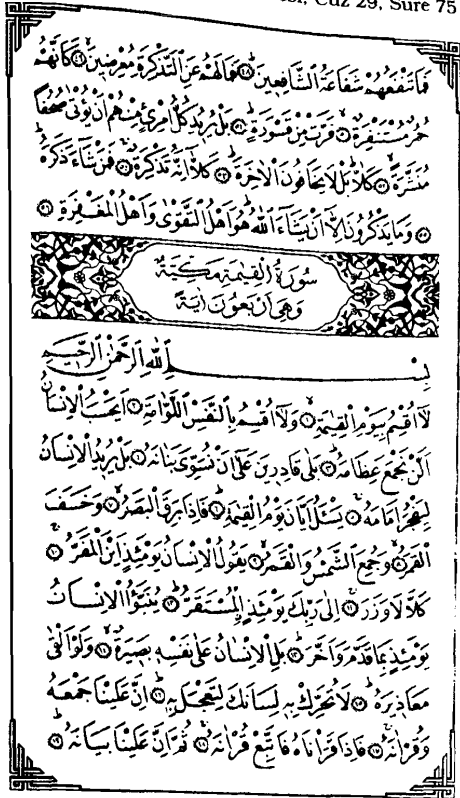 Cüz 29, Sure 75
فَمَا تَنْفَعُهُمْ شَفَاعَةُ الشَّافِع۪ينَۜ ﴿٤٨﴾ فَمَا لَهُمْ عَنِ التَّذْكِرَةِ مُعْرِض۪ينَۙ ﴿٤٩﴾ كَاَنَّهُمْ
حُمُرٌ مُسْتَنْفِرَةٌۙ ﴿٥٠﴾ فَرَّتْ مِنْ قَسْوَرَةٍۜ ﴿٥١﴾ بَلْ يُر۪يدُ كُلُّ امْرِئٍ مِنْهُمْ اَنْ يُؤْتٰى صُحُفاً
مُنَشَّرَةًۙ ﴿٥٢﴾ كَلَّاۜ بَلْ لَا يَخَافُونَ الْاٰخِرَةَۜ ﴿٥٣﴾ كَلَّٓا اِنَّهُ تَذْكِرَةٌۚ ﴿٥٤﴾ فَمَنْ شَٓاءَ ذَكَرَهُۜ
﴿٥٥﴾ وَمَا يَذْكُرُونَ اِلَّٓا اَنْ يَشَٓاءَ اللّٰهُۜ هُوَ اَهْلُ التَّقْوٰى وَاَهْلُ الْمَغْفِرَةِ ﴿٥٦﴾
سُورَةُ الْقِيٰمَةِ مَكِّيَّةٌ
وَهِيَ اَرْبَعُونَ اٰيَةً
بِسْمِ اللّٰهِ الرَّحْمٰنِ الرَّح۪يمِ
لَٓا اُقْسِمُ بِيَوْمِ الْقِيٰمَةِۙ ﴿١﴾ وَلَٓا اُقْسِمُ بِالنَّفْسِ اللَّوَّامَةِۜ ﴿٢﴾ اَيَحْسَبُ الْاِنْسَانُ
اَلَّنْ نَجْمَعَ عِظَامَهُۜ ﴿٣﴾ بَلٰى قَادِر۪ينَ عَلٰٓى اَنْ نُسَوِّيَ بَنَانَهُ ﴿٤﴾ بَلْ يُر۪يدُ الْاِنْسَانُ
لِيَفْجُرَ اَمَامَهُۚ ﴿٥﴾ يَسْـَٔلُ اَيَّانَ يَوْمُ الْقِيٰمَةِۜ ﴿٦﴾ فَاِذَا بَرِقَ الْبَصَرُۙ ﴿٧﴾ وَخَسَفَ
الْقَمَرُۙ ﴿٨﴾ وَجُمِعَ الشَّمْسُ وَالْقَمَرُۙ ﴿٩﴾ يَقُولُ الْاِنْسَانُ يَوْمَئِذٍ اَيْنَ الْمَفَرُّۚ ﴿١٠﴾
كَلَّا لَا وَزَرَۜ ﴿١١﴾ اِلٰى رَبِّكَ يَوْمَئِذٍۨ الْمُسْتَقَرُّۜ ﴿١٢﴾ يُنَبَّؤُا الْاِنْسَانُ
يَوْمَئِذٍ بِمَا قَدَّمَ وَاَخَّرَۜ ﴿١٣﴾ بَلِ الْاِنْسَانُ عَلٰى نَفْسِه۪ بَص۪يرَةٌۙ ﴿١٤﴾ وَلَوْ اَلْقٰى
مَعَاذ۪يرَهُۜ ﴿١٥﴾ لَا تُحَرِّكْ بِه۪ لِسَانَكَ لِتَعْجَلَ بِه۪ۜ ﴿١٦﴾ اِنَّ عَلَيْنَا جَمْعَهُ
وَقُرْاٰنَهُۚ ﴿١٧﴾ فَاِذَا قَرَاْنَاهُ فَاتَّبِعْ قُرْاٰنَهُۚ ﴿١٨﴾ ثُمَّ اِنَّ عَلَيْنَا بَيَانَهُۜ ﴿١٩﴾